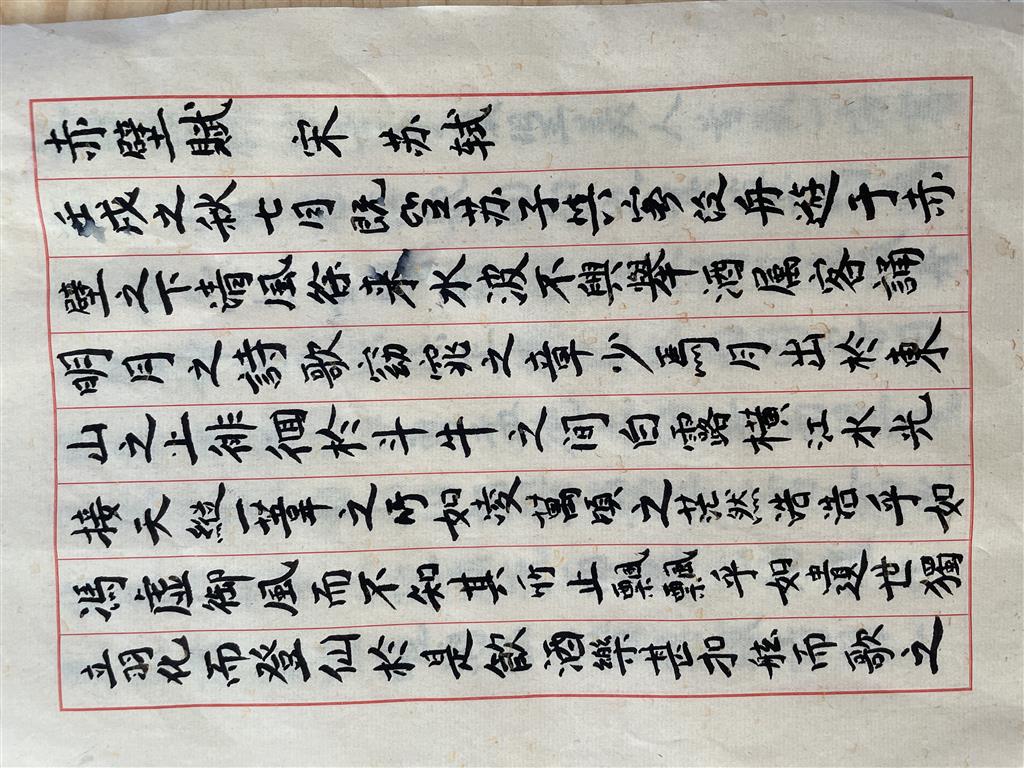 赤壁賦 宋 苏轼
壬戌之秋七月既望苏子與客泛舟遊于赤
壁之下清風徐来水波不興舉酒属客誦
明月之詩歌窈窕之章少焉月出於東
山之上徘徊於斗牛之间白露横江水光
接天縱一葦之所如凌萬頃之茫然浩浩乎如
馮虚御風而不知其所止飄飄乎如遺世獨
立羽化而登仙於是飲酒樂甚扣舷而歌之